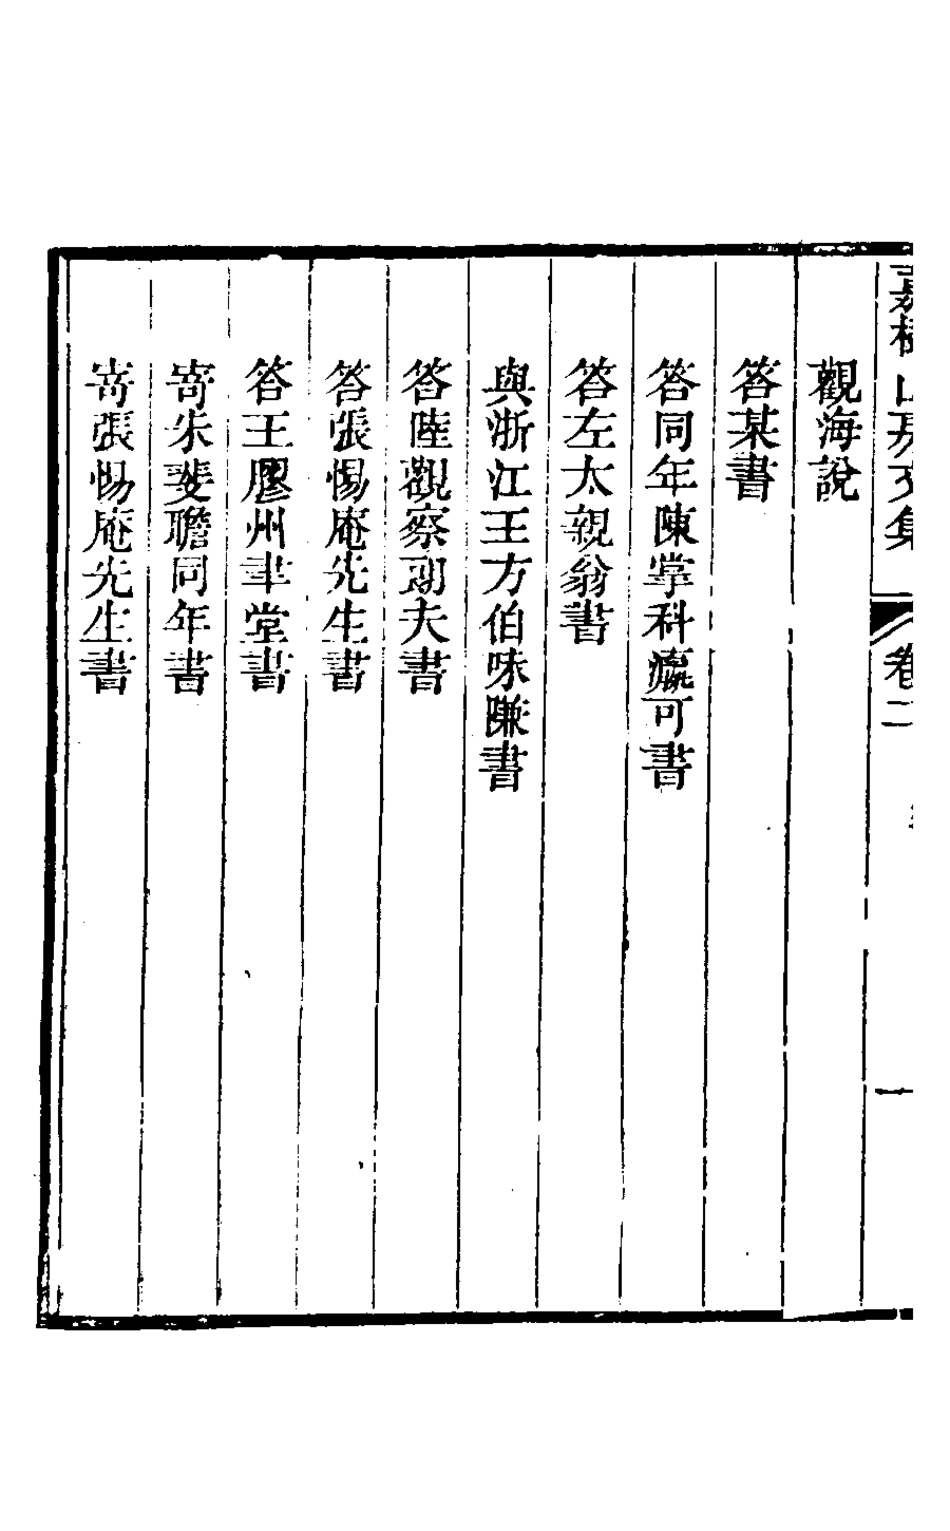 嘉樹山房文集 卷二 一
觀海說
答某書
答同年陳掌科瀛可書
答左太親翁書
與浙江王方伯味隒書
答陸觀察朗夫書
答張惕庵先生書
答王膠州聿堂書
寄朱斐瞻同年書
寄張惕庵先生書